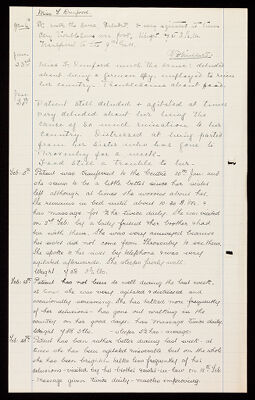 Miss F. Dunford.
the same. Deluded & very agitated at times
Very troublesome over food. Weight
Transferred to
Miss F. Dunford much the same: deluded
about being a German spy, employed to ruin
her country. Troublesome about food.
Patient still deluded & agitated at times
very deluded about her being the
cause of so much ruination to her
country. Distressed at being parted
from her sister who has gone to
for a week.
Food still a trouble to her.
Feb. 5th Patient was transferred to the Centre 10th Jan. and
she seems to be a little better since her visit
left although at times she worries about her.
She remains in bed until about 10.30 A.M. &
has massage for 3/4 hr. twice daily. She was visited
on 3rd Feb. by a lady friend. Her brother should
her with them. She was very annoyed because
his word did not come from to see them.
She spoke to his wife by telephone & was very
agitated afterwards. She sleeps fairly well.
Weight 7st 3½ lbs.
Feb. 12th Patient has not been so well during the last week,
at times she was very agitated & distressed and
occasionally screaming. She has talked more frequently
of her delusions - has gone out walking in the
country on her good days. has massage twice daily.
Weight 7st 3 lbs. - sleeps 5½ hrs. average.
Patient has been rather better during last week - at
times she has been agitated & miserable but on the whole
she has been brighter. talks less frequently of her
delusions - visited by her brother & sister-in-law on
massage given twice daily - muscles improving.